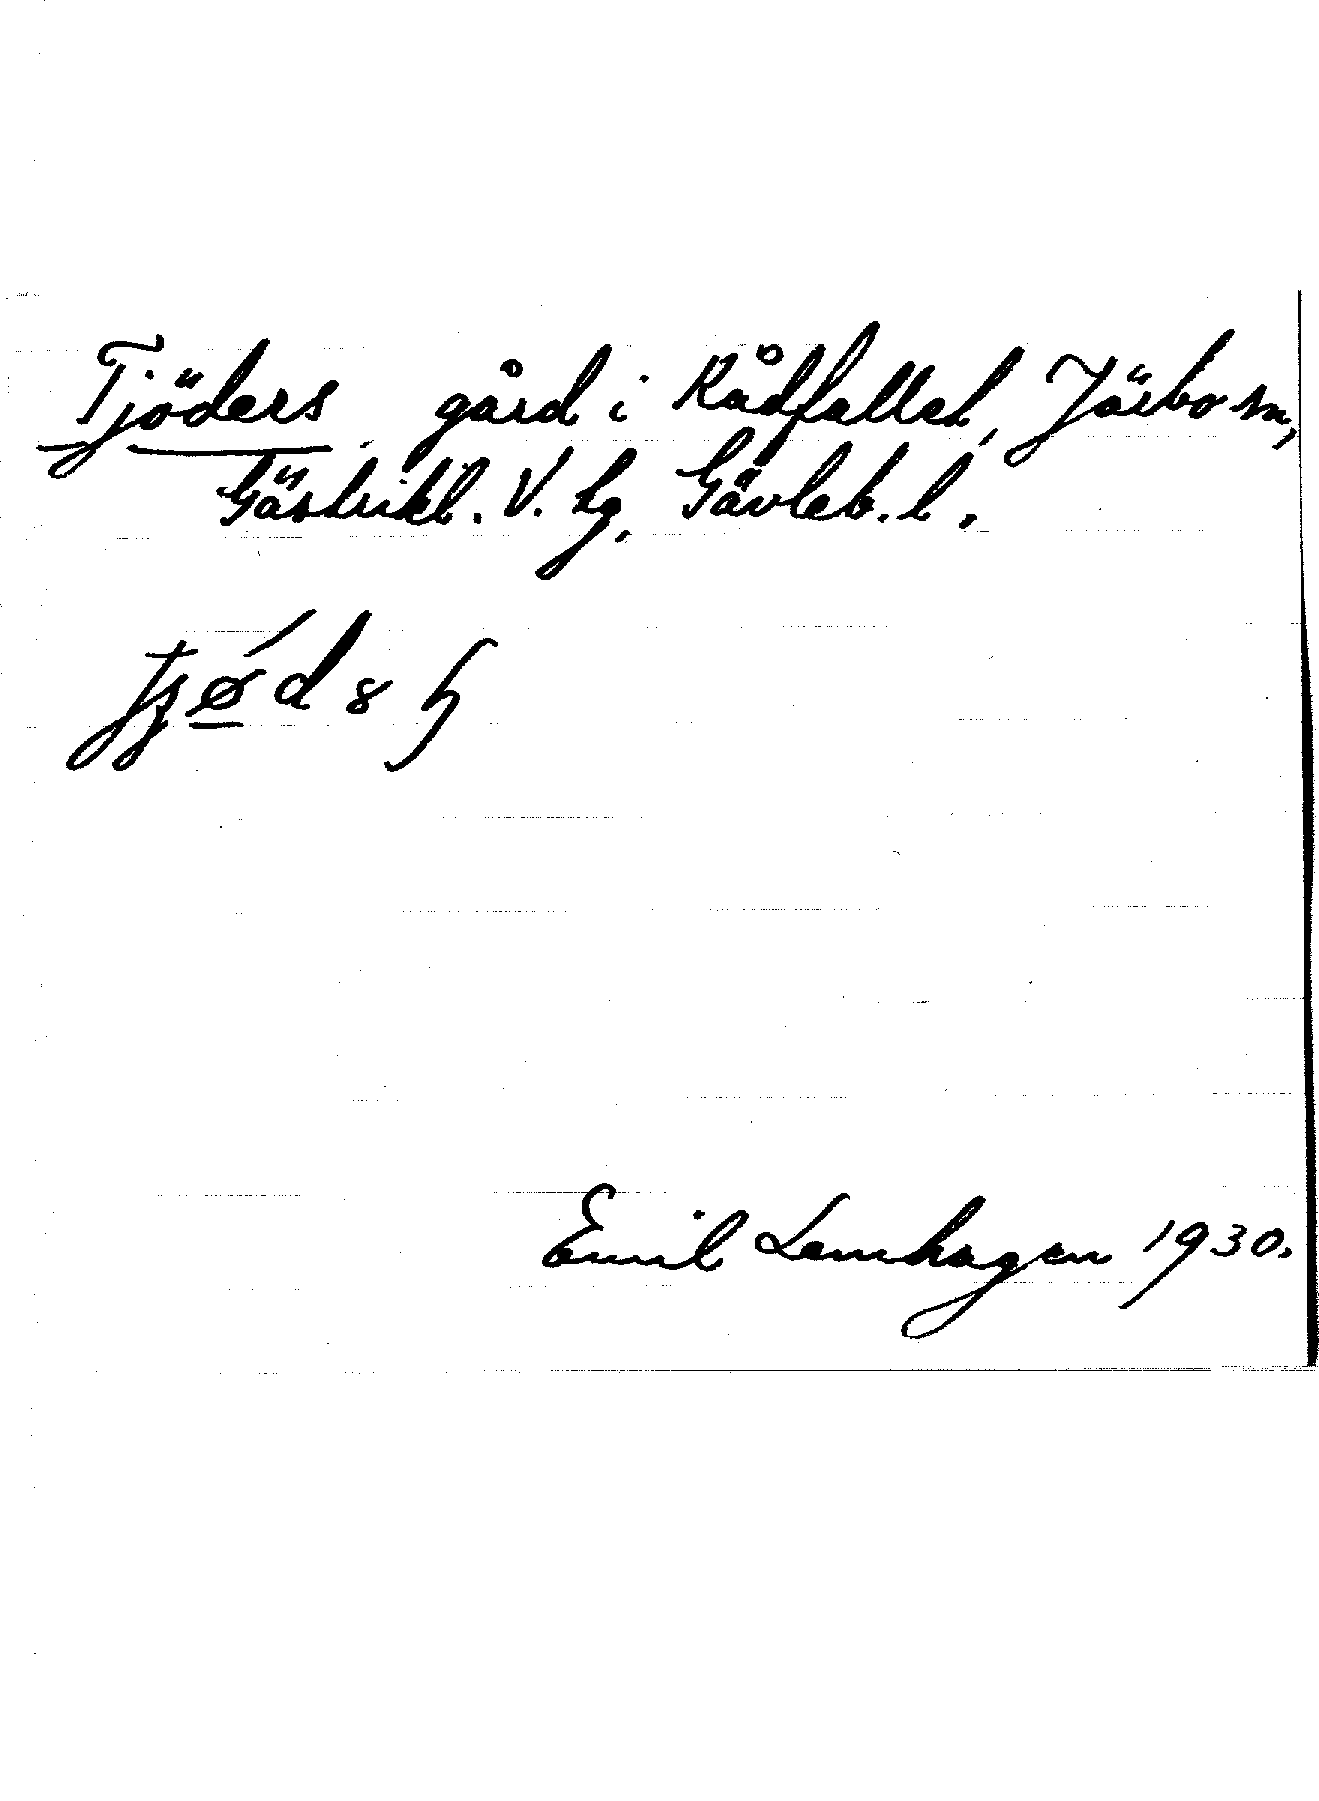 Tjöders gård i Rådfallet, Järbo sn,
Gästrikl. V. hg, Gävleb. l.
Emil Lenhagen 1930.